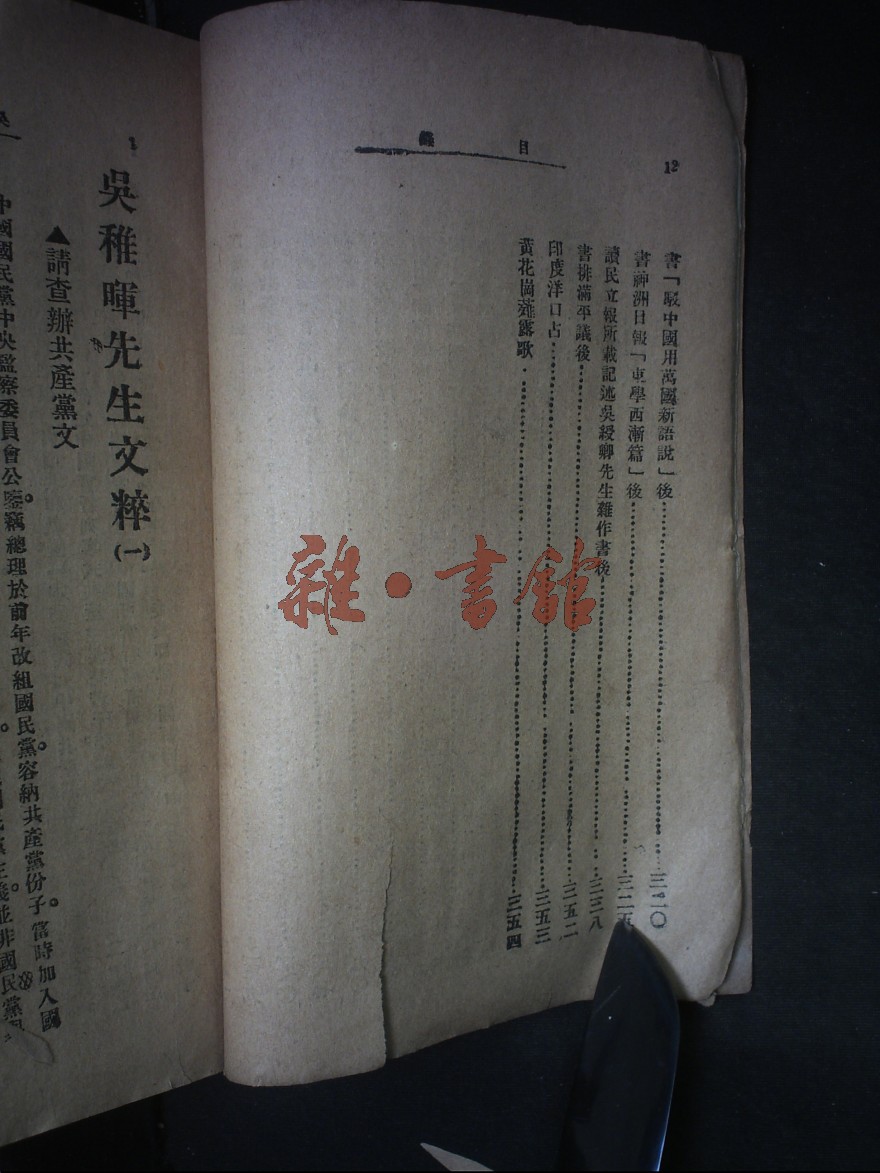 12
目錄
書「駁中國用萬國新語說」後……三二〇
書神洲日報「東學西漸篇」後……三二五
讀民立報所載記述吳綬卿先生雜作書後……三三八
書排滿平議後……三五二
印度洋口占……三五三
黃花崗薤露歌……三五四
雜·書館
吳稚暉先生文粹(一)
▲請查辦共產黨文
中國國民黨中央監察委員會公鑒。竊總理於前年改組國民黨。容納共產黨份子。當時加入國